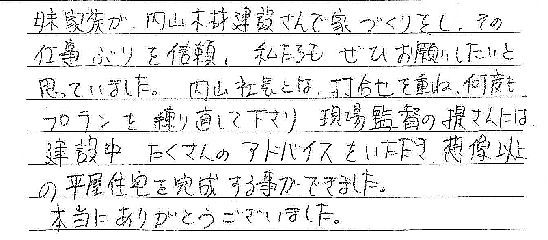 妹家族が、内山木材建設さんで家づくりをし、その
仕事ぶりを信頼、私たちも ぜひお願いしたいと
思っていました。 内山社長とは、打合せを重ね、何度も
プランを練り直して下さり 現場監督の提さんには
建設中 たくさんのアドバイスをいただき 想像以上
の平屋住宅を完成する事ができました。
本当にありがとうございました。